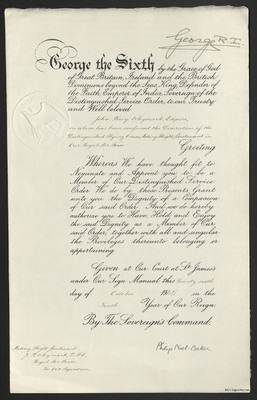 George R.I.
George the Sixth by the Grace of God
of Great Britain, Ireland and the British
Dominions beyond the Seas King, Defender of
the Faith, Emperor of India, Sovereign of the
Distinguished Service Order, to our Trusty
and Well beloved
John Henry Esquire,
on whom We have conferred the Decoration of the
Distinguished Flying Cross, Acting Flight Lieutenant in
Our Royal Air Force
Greeting
Whereas We have thought fit to
Nominate and Appoint you to be a
Member of Our Distinguished Service
Order We do by these Presents Grant
unto you the Dignity of a Companion
of Our said Order And we do hereby
authorize you to Have, Hold and Enjoy
the said Dignity as a Member of Our
said Order, together with all and singular
the Privileges thereunto belonging or
appertaining
Given at Our Court at St. James's
under Our Sign Manual this
day of October 194 in the
Year of Our Reign.
By The Sovereign's Command.
Acting Flight Lieutenant
Royal Air Force
Squadron
Philip Noel Baker